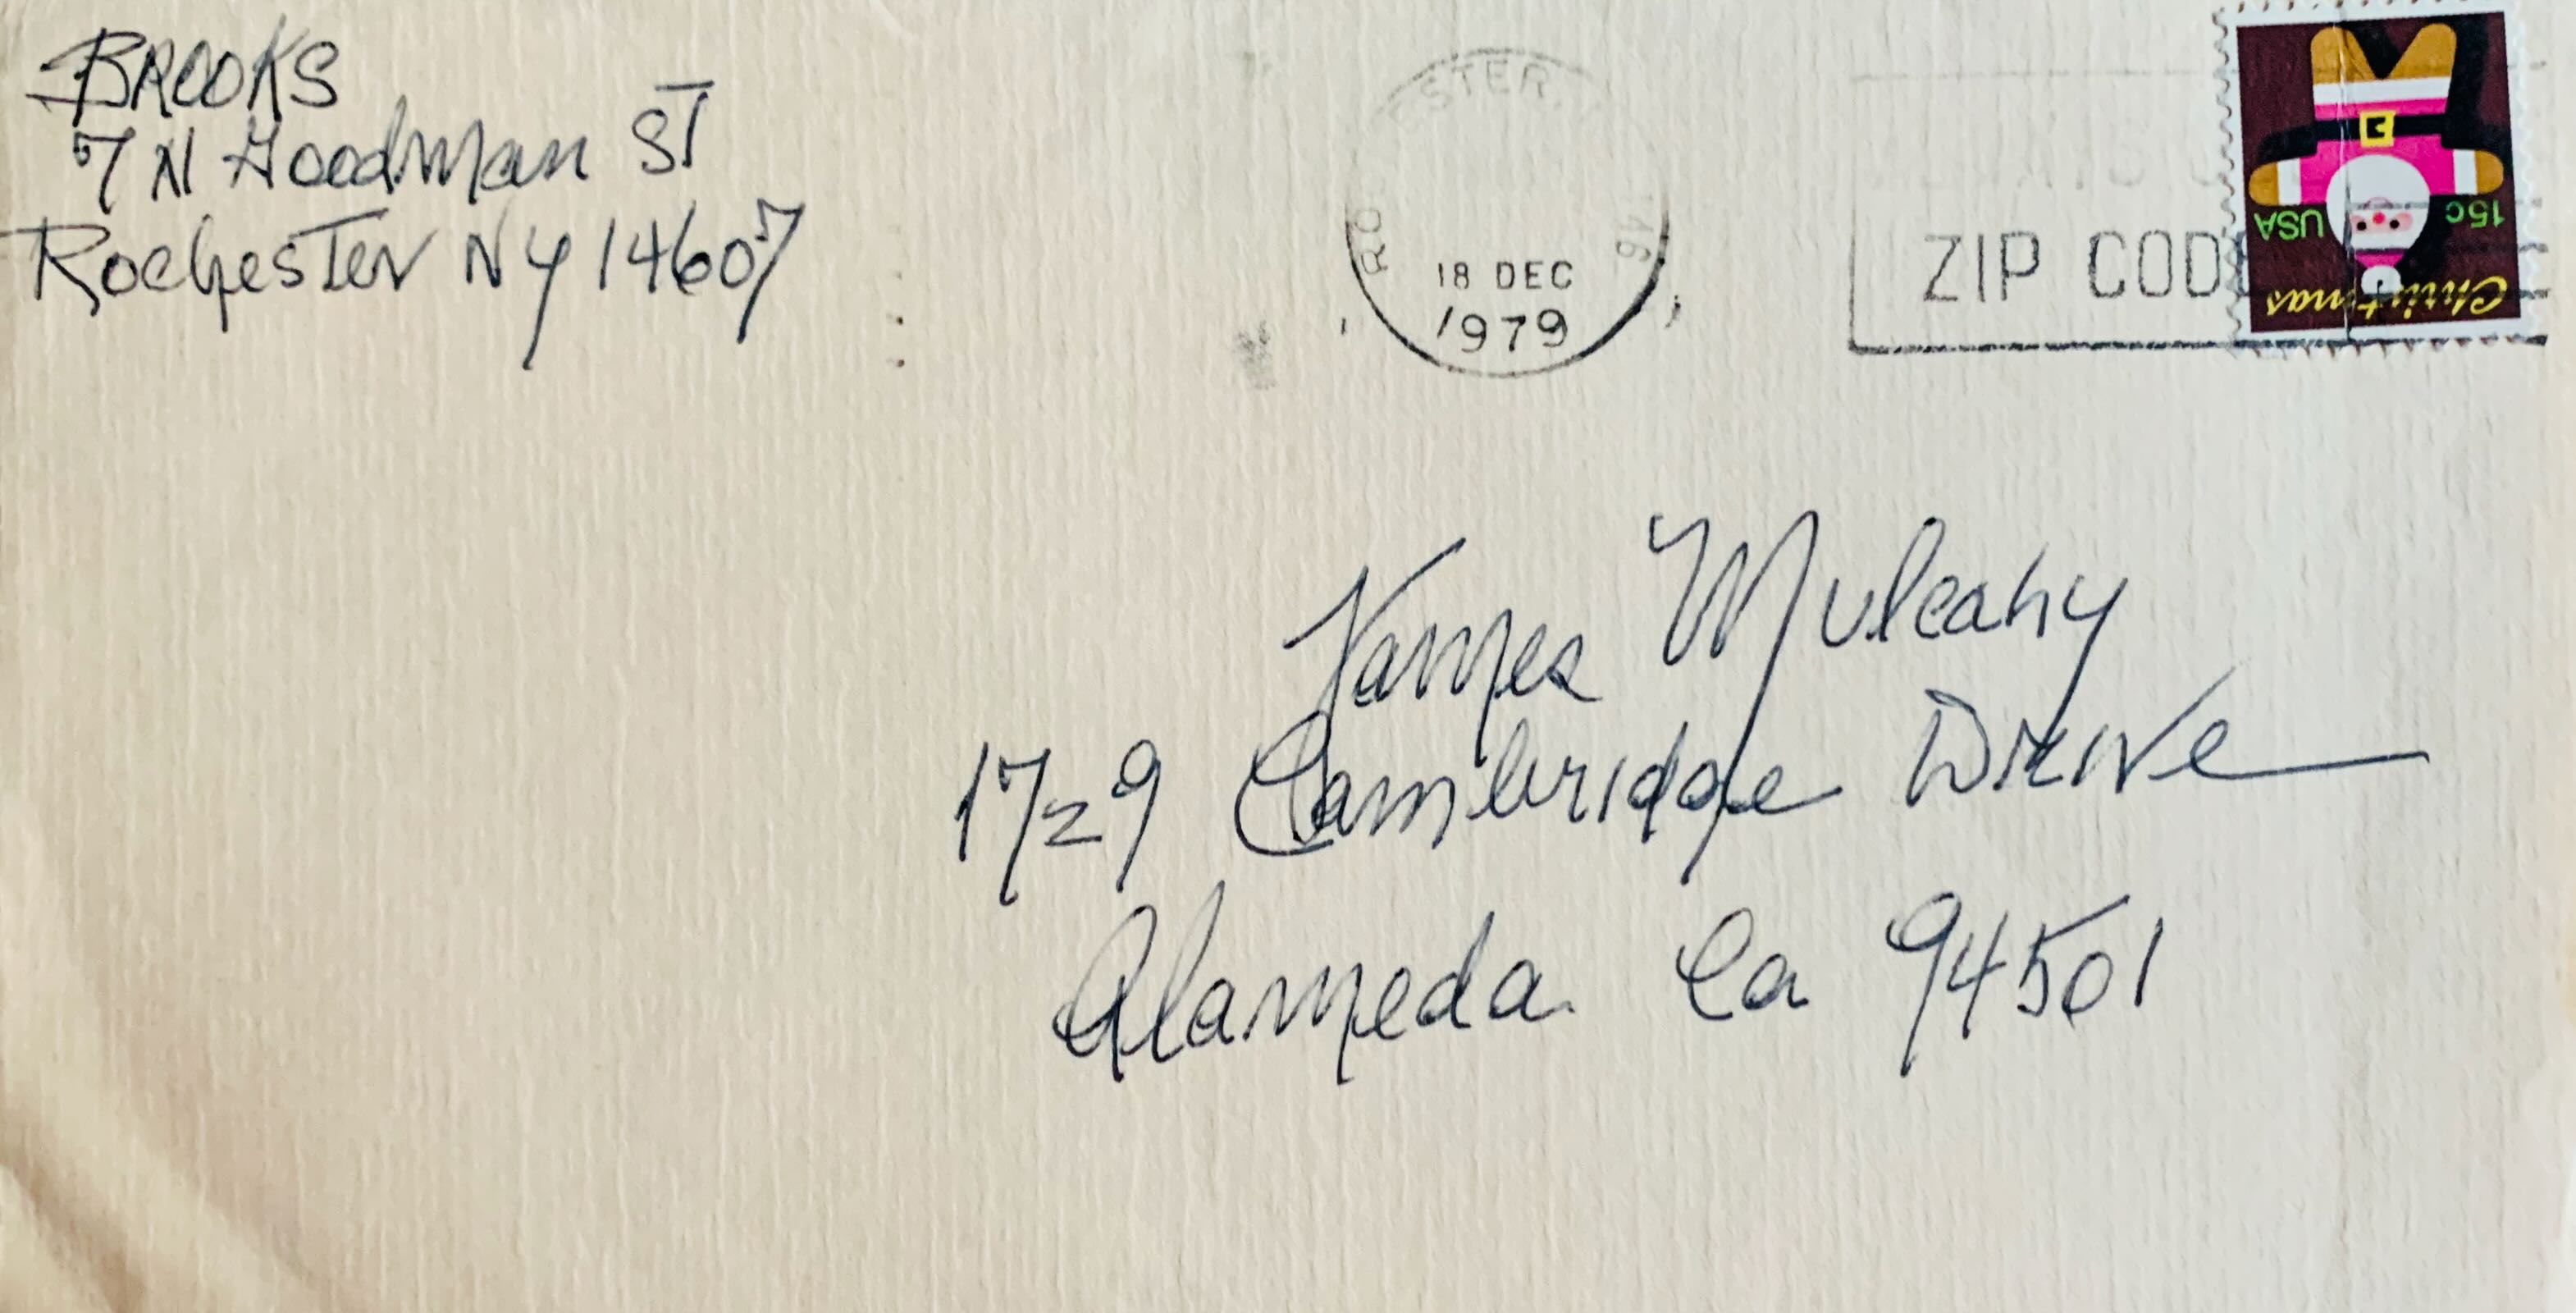 BROOKS
7 N Goodman ST
Rochester NY 14607
18 DEC
1979
ZIP COD
15c USA
Christmas
James Mulcahy
1729 Cambridge Drive
Alameda Ca 94501